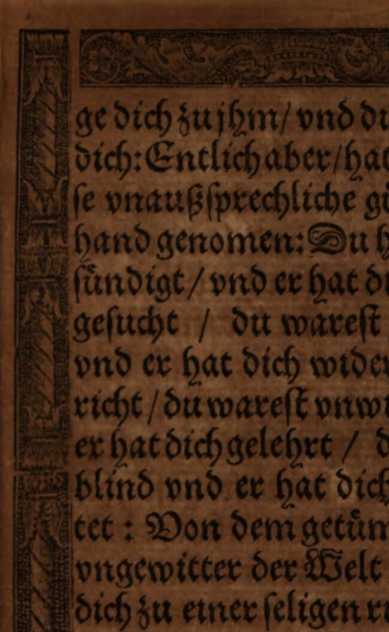 ge dich zu jhm/ vnd du
dich: Entlich aber/ hat
se vnaußsprechliche gü
hand genomen: Du h
sündigt/ vnd er hat di
gesucht / du warest
vnd er hat dich wider
richt/ du warest vnwi
er hat dich gelehrt / d
blind vnd er hat dich
tet : Von dem getüm
vngewitter der Welt
dich zu einer seligen ru